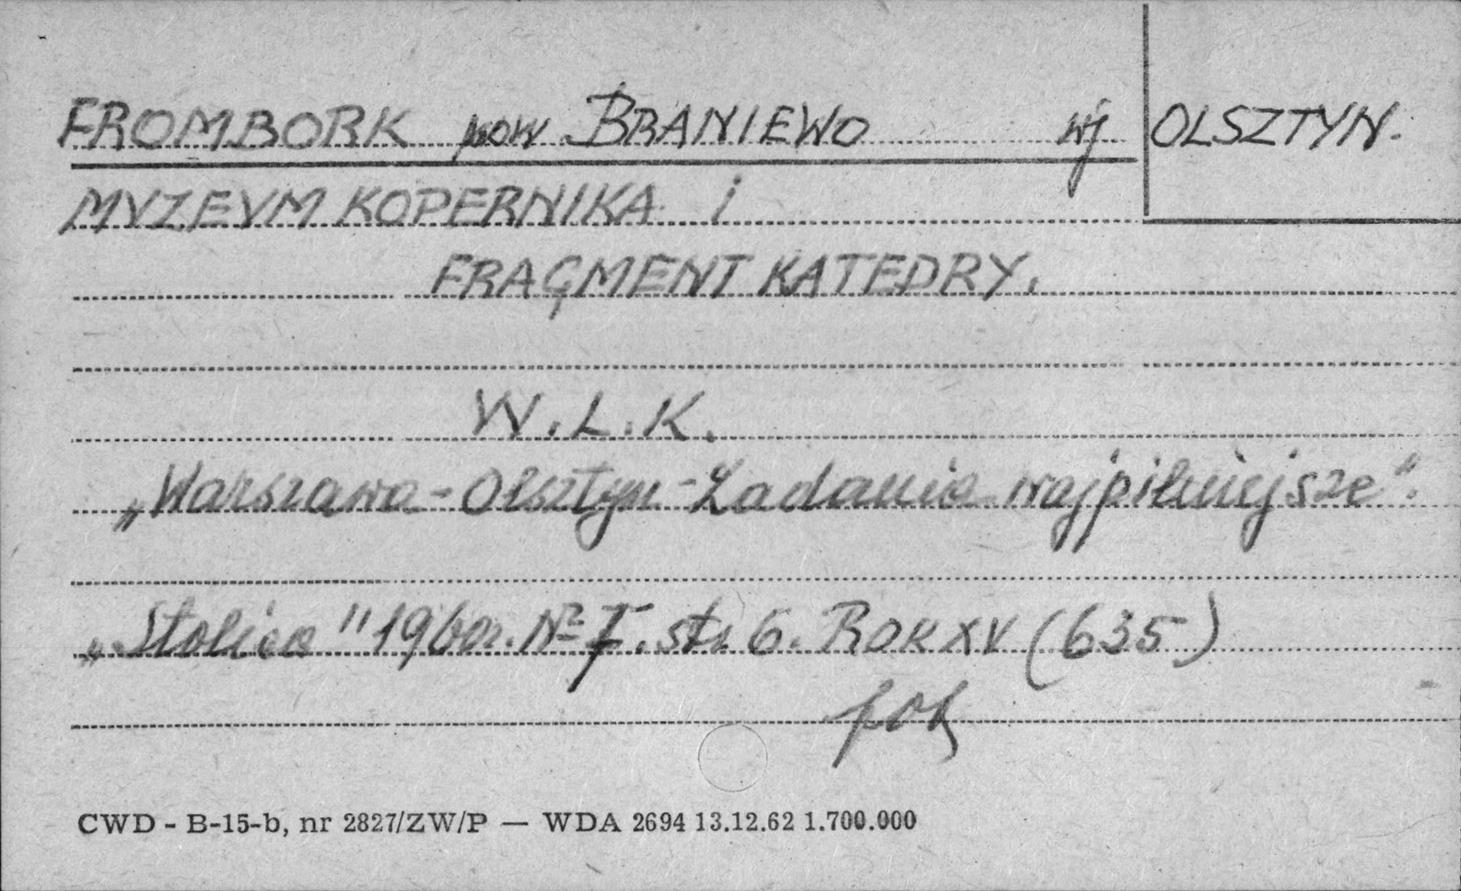 FROMBORK pow BRANIEWO wj OLSZTYN.
MVZEVM KOPERNIKA i
FRAGMENT KATEDRY.
W.L.K.
„Warszawa - Olsztyn - Zadania najpilniejsze".
„Stolica" 1960r. № 7. str. 6. ROK XV (635)
fot
CWD - B-15-b, nr 2827/ZW/P — WDA 2694 13.12.62 1.700.000